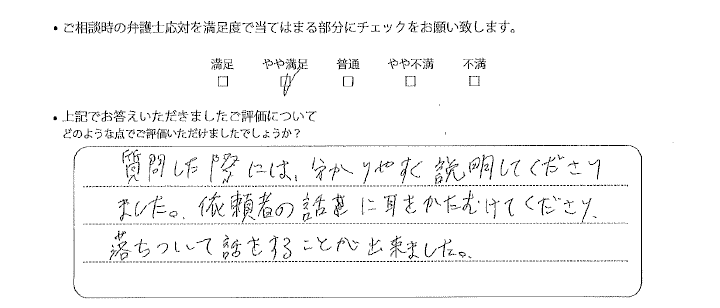 ・ご相談時の弁護士応対を満足度で当てはまる部分にチェックをお願い致します。
満足 やや満足 普通 やや不満 不満
・上記でお答えいただきましたご評価について
どのような点でご評価いただけましたでしょうか?
質問した際には、分かりやすく説明してくださり
ました。依頼者の話に耳をかたむけてくださり、
落ちついて話をすることが出来ました。